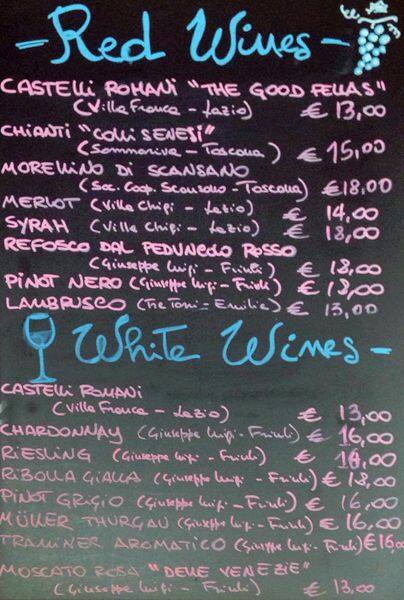 - Red Wines -
CASTELLI ROMANI "THE GOOD FELLAS"
(Villa Franca - Lazio) € 13,00
CHIANTI "COLLI SENESI"
(Sommariva - Toscana) € 15,00
MORELLINO DI SCANSANO
(Soc. Coop. Scansano - Toscana) €18,00
MERLOT (Villa Chigi - Lazio) € 14,00
SYRAH (Villa Chigi - Lazio) € 18,00
REFOSCO DAL PEDUNCOLO ROSSO
(Giuseppe Luigi - Friuli) € 18,00
PINOT NERO (Giuseppe Luigi - Friuli) € 18,00
LAMBRUSCO (Tre Torri - Emilia) € 13,00
White Wines -
CASTELLI ROMANI
(Villa Franca - Lazio) € 13,00
CHARDONNAY (Giuseppe Luigi - Friuli) € 16,00
RIESLING (Giuseppe Luigi - Friuli) € 16,00
RIBOLLA GIALLA (Giuseppe Luigi - Friuli) € 18,00
PINOT GRIGIO (Giuseppe Luigi - Friuli) € 16,00
MÜLLER THURGAU (Giuseppe Luigi - Friuli) € 16,00
TRAMINER AROMATICO (Giuseppe Luigi - Friuli) €16,00
MOSCATO ROSA "DELLE VENEZIE"
(Giuseppe Luigi - Friuli) € 13,00